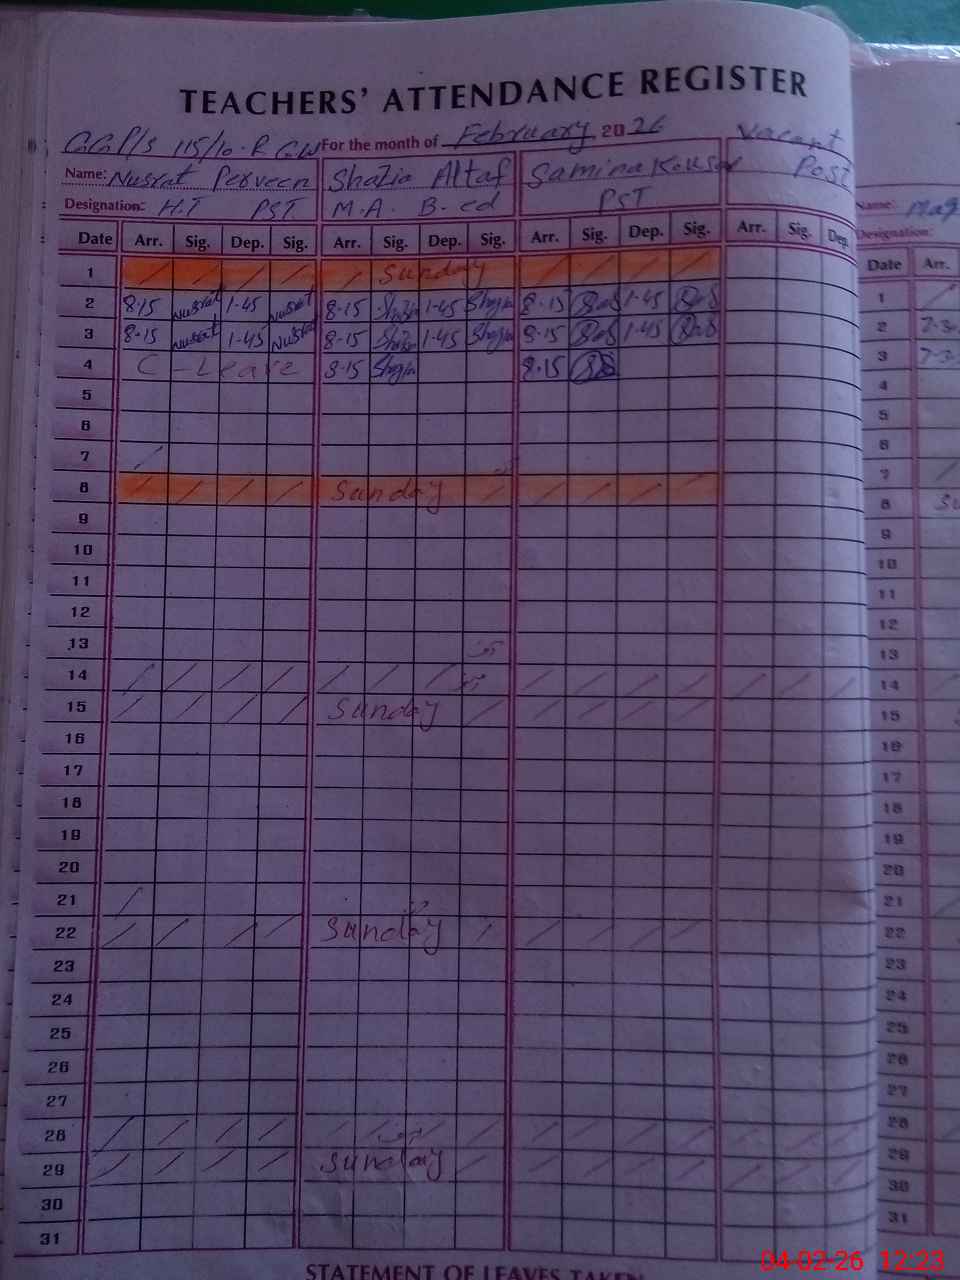 TEACHERS' ATTENDANCE REGISTER
115/10-R For the month of February 2026 Vacant Post
Name: Nusrat Perveen Shazia Altaf Samina Kousar
Designation: H.T PST. M.A. B-ed PST
Date Arr. Sig. Dep. Sig. Arr. Sig. Dep. Sig. Arr. Sig. Dep. Sig. Arr. Sig. Dep.
1 Sunday
2 8-15 Nusrat 1-45 Nusrat 8-15 1-45 8-15 1-45
3 8-15 Nusrat 1-45 Nusrat 8-15 1-45 8-15 1-45
4 C-Leave 8-15 8-15
5
6
7
8 Sunday
9
10
11
12
13
14
15 Sunday
16
17
18
19
20
21
22 Sunday
23
24
25
26
27
28
29 Sunday
30
31
STATEMENT OF LEAVES TAKEN
Name:
Designation:
Date Arr.
1
2 7-3
3 7-3
4
5
6
7
8 Su
9
10
11
12
13
14
15
16
17
18
19
20
21
22
23
24
25
26
27
28
29
30
31
04-02-26 12:23